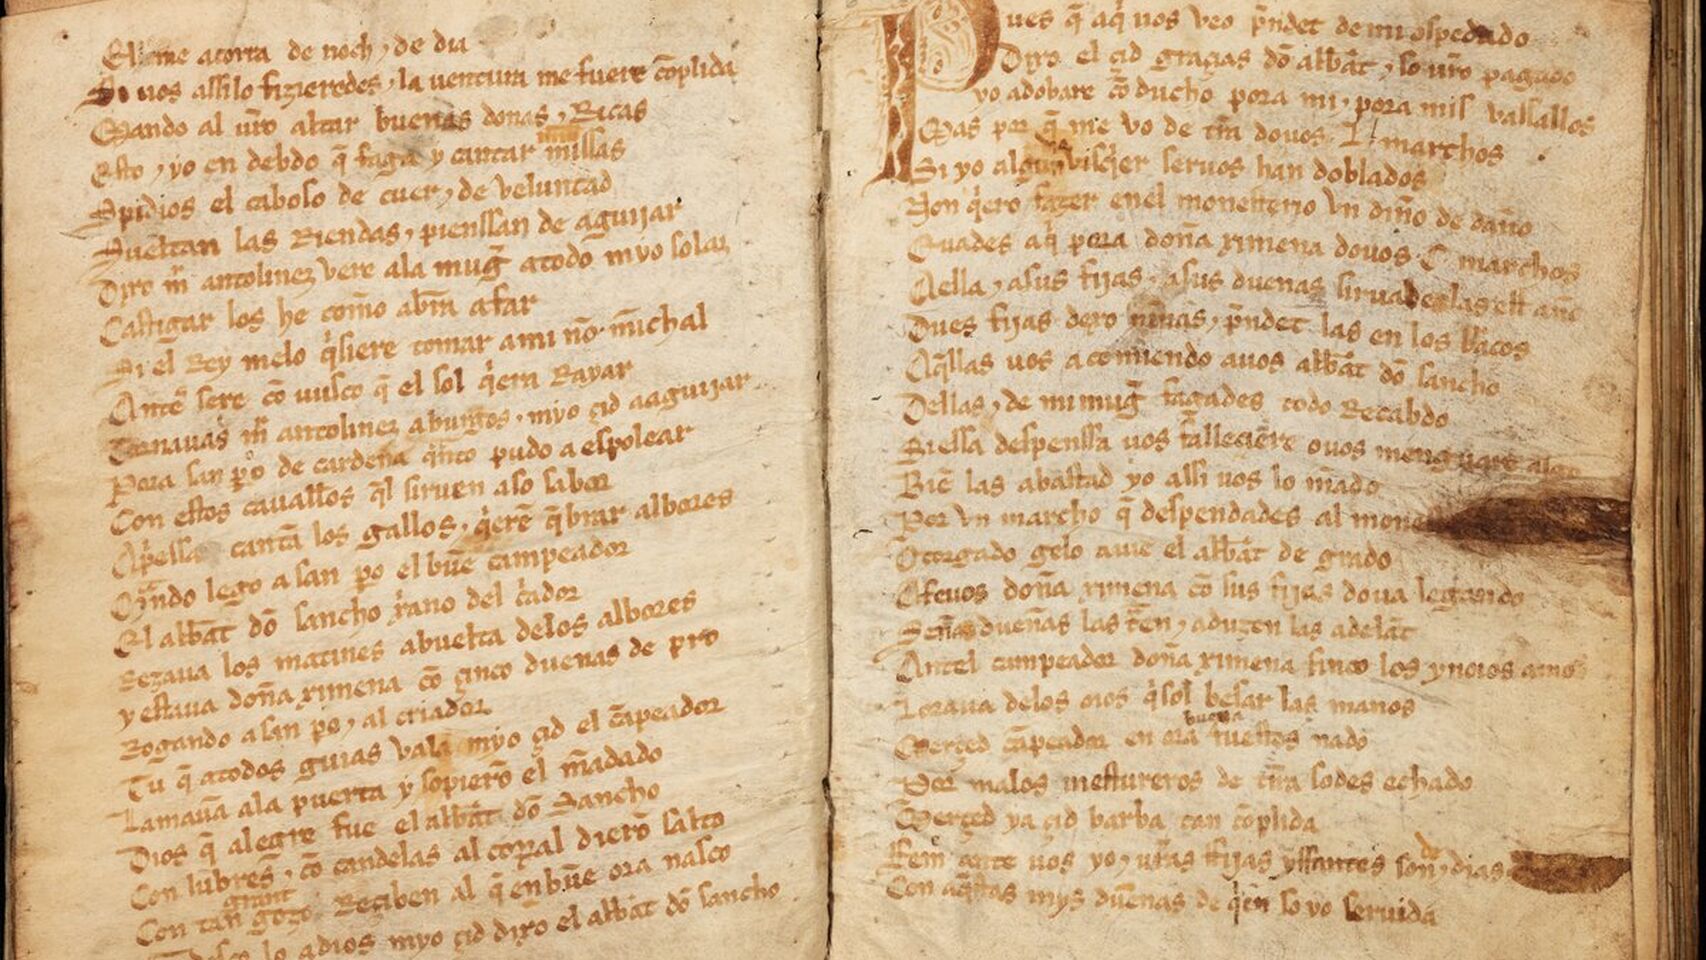 Ella me acorra de noch ⁊ de dia
Si uos assilo fizieredes ⁊ la uentura me fuere cōplida
Mando al ur̄o altar buenas donas ⁊ Ricas
Esto ⁊ yo en debdo q̄ faga y cantar mill missas
Spidios el caboso de cuer ⁊ de veluntad
Sueltan las Riendas ⁊ pienssan de aguijar
Dixo m̄ antolinez vere ala mugẽ atodo myo solaz
Castigar los he commo abrã afar
Si el Rey melo q̇siere tomar ami nõ minchal
Antes sere cõ uusco q̄ el sol q̇era Rayar
Tornauas m̄ antolinez aburgos ⁊ myo çid aaguijar
Pora san p̄o de cardeña q̃nto pudo a espolear
Con estos cauałłos q̄l siruen aso sabor
Ap̄essa cantã los gallos ⁊ q̇erẽ q̄brar albores
Q̃ndo lego a san p̄o el buẽ campeador
El abbat dõ sancho xp̄iano del c̃ador
Rezaua los matines abuelta delos albores
y estaua doña ximena cõ çinco duenas de pro
Rogando a san p̄o ⁊ al criador
Tu q̄ atodos guias vala myo çid el cãpeador
Lamauã ala puerta y sopierõ el mãdado
Dios q̄ alegre fue el abbat dõ Sancho
Con lũbres ⁊ cõ candelas al corral dierõ salto
Con tan grant gozo Reçiben al q̄ en buẽ ora nasco
lo adios myo çid dixo el abbat dõ sancho
Pues q̄ aq̇ uos veo p̃ndet de mi ospedado
Dixo el çid graçias dõ abbat ⁊ so ur̄o pagado
yo adobare cõducho pora mi ⁊ pora mis vassallos
Mas por q̄ me vo de tr̃a douos L marchos
Si yo algun visq̇er seruos han doblados
Non q̇ero fazer enel monesterio vn diño de daño
Euades aq̇ pora doña ximena douos C marchos
Aella ⁊ asus fijas ⁊ asus duenas siruades las est año
Dues fijas dexo niñas ⁊ p̃ndet las en los bracos
Aq̄llas uos acomiendo auos abbat dõ sancho
Dellas ⁊ de mi mugẽ fagades todo Recabdo
Si essa despenssa uos falleciere ouos menguare algo
Biẽ las abastad yo assi uos lo mãdo
Por vn marcho q̄ despendades al mone
Otorgado gelo auie el abbat de grado
Afeuos doña ximena cõ sus fijas doua legando
Señas dueñas las traen ⁊ aduzen las adelãt
Antel campeador doña ximena finco los ynoios amos
Loraua delos oios q̇sol besar las manos
Merçed cãpeador en ora buena fuestes nado
Por malos mestureros de tr̃a sodes echado
Merçed ya çid barba tan cõplida
Fem ante uos yo ⁊ ur̃as fijas yffantes son ⁊ de dias
Con aq̄stas mys dueñas de q̇en so yo seruida